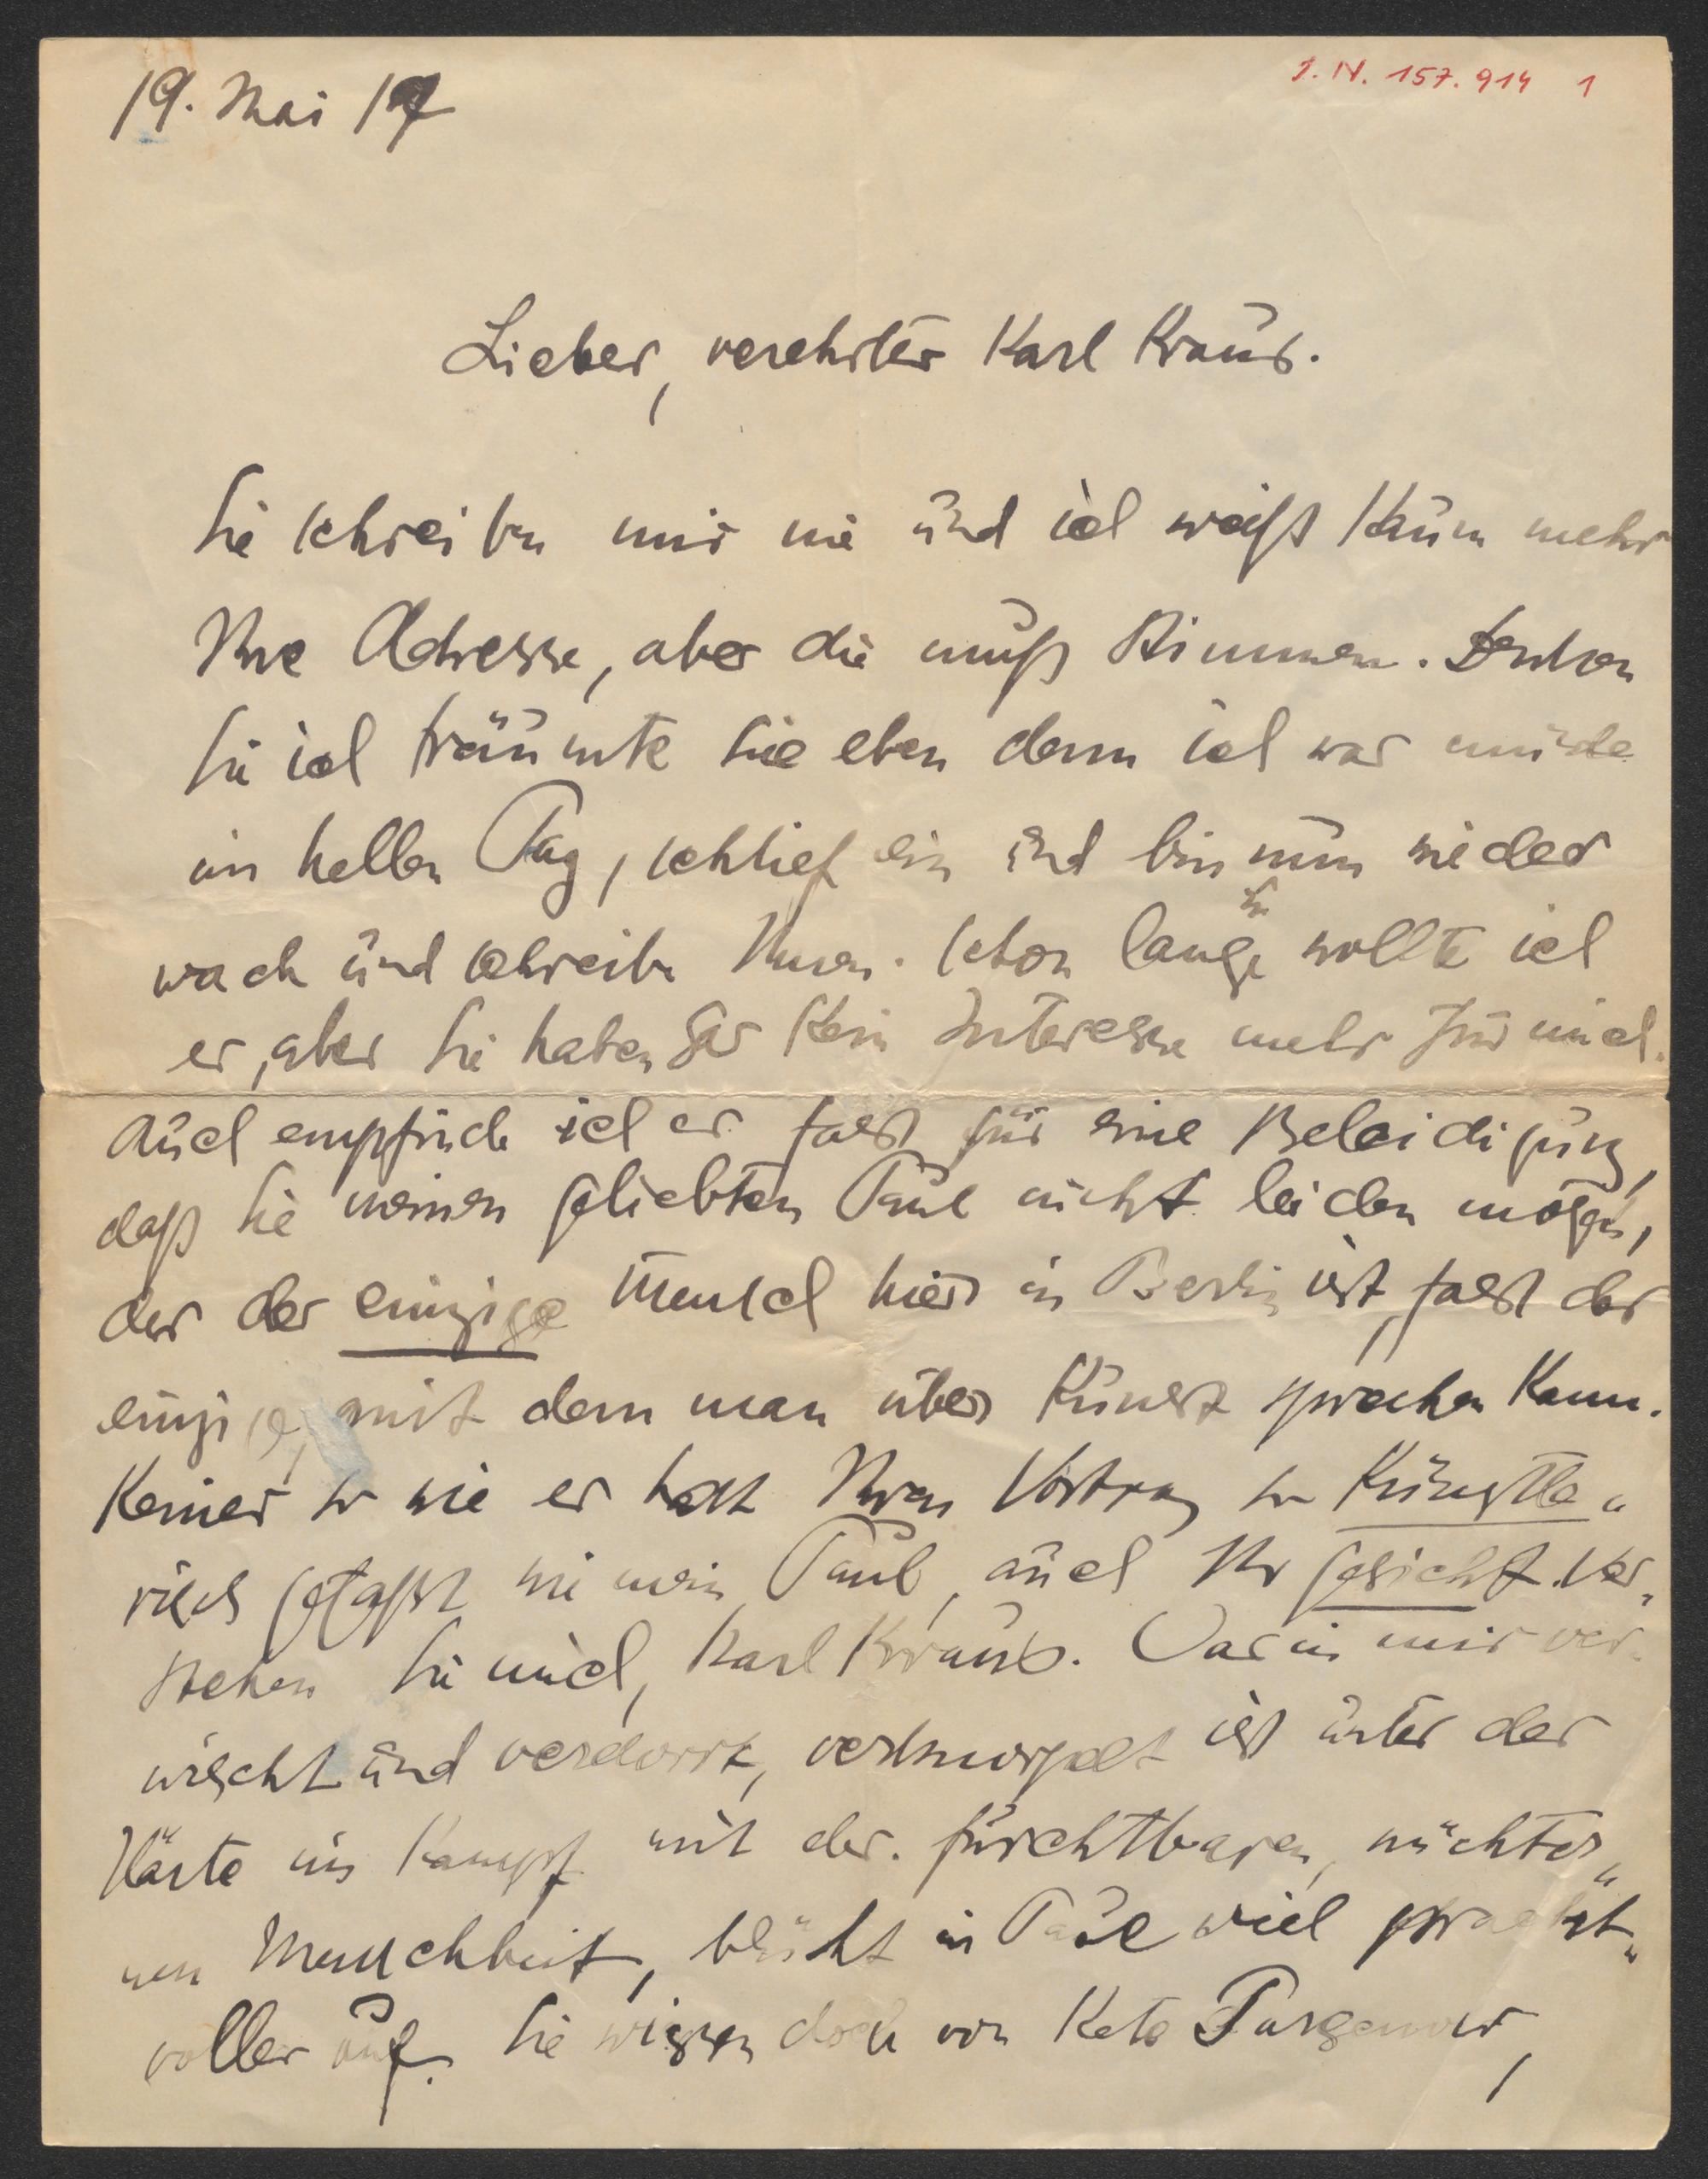 19. Mai 17
I. N. 157.914 1
Lieber, verehrter Karl Kraus.
Sie schreiben mir nie und ich weiß kaum mehr
Ihre Adresse, aber die muß stimmen. Denken
Sie ich träumte Sie eben denn ich war müde
im hellen Tag, schlief ein und bin nun wieder
wach und schreibe Ihnen. Schon lange wollte ich
es, aber Sie haben gar kein Interesse mehr für mich.
Auch empfinde ich es fast für eine Beleidigung,
daß Sie meinen geliebten Paul nicht leiden mögen,
der der einzige Mensch hier in Berlin ist, fast der
einzige, mit dem man über Kunst sprechen kann.
Keiner so wie er hat Ihren Vortrag so künstle„
risch gefaßt wie mein Paul, auch Ihr Gesicht. Ver„
stehen Sie mich, Karl Kraus. Was in mir ver„
wischt und verdorrt, ist unter der
Härte im Kampf mit der furchtbaren, nüchter„
nen Menschheit, blüht in Paul viel pracht„
voller auf. Sie wissen doch von Kete